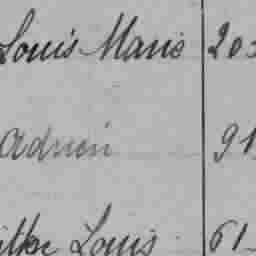 Louis Marie 20
Adrien 91
Louis 61